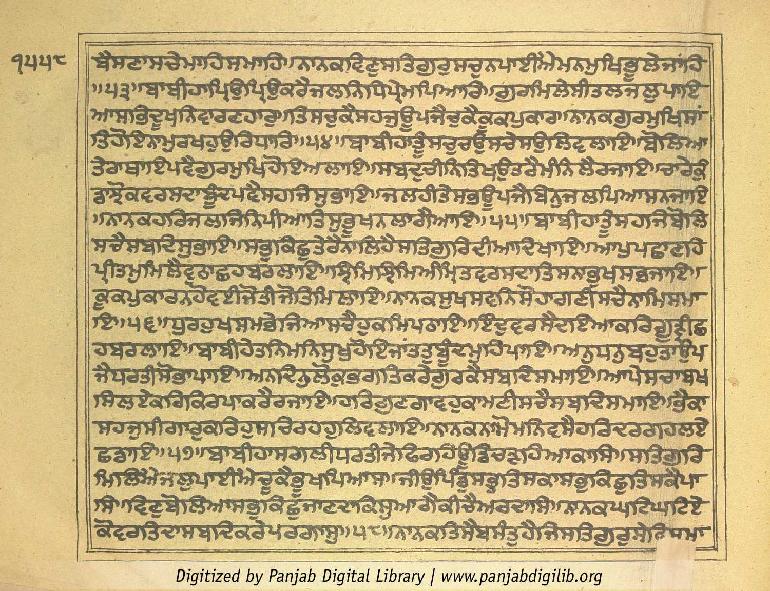 ੧੫੫੮
ਬੈਸਣਾਸਚੇਮਾਹਿਸਮਾਹਿ॥ਨਾਨਕਵਿਣੁਸਤਿਗੁਰਸਚੁਨਪਾਈਐਮਨਮੁਖਿਭੂਲੇਜਾਂਹਿ
॥੫੩॥ਬਾਬੀਹਾਪ੍ਰਿਉਪ੍ਰਿਉਕਰੈਜਲਨਿਧਿਪ੍ਰੇਮਪਿਆਰਿ॥ਗੁਰਮਿਲੇਸੀਤਲਜਲੁਪਾਇ
ਆਸਭਿਦੂਖਨਿਵਾਰਣਹਾਰੁ॥ਤਿਸਚੁਕੈਸਹਜੁਊਪਜੈਚੁਕੈਕੂਕਪੁਕਾਰ॥ਨਾਨਕਗੁਰਮੁਖਿਸਾਂ
ਤਿਹੋਇਨਾਮੁਰਖਹੁਉਰਿਧਾਰਿ॥੫੪॥ਬਾਬੀਹਾਤੂੰਸਚੁਚਉਸਚੇਸਉਲਿਵਲਾਇ॥ਬੋਲਿਆ
ਤੇਰਾਥਾਇਪਵੈਗੁਰਮੁਖਿਹੋਇਅਲਾਇ॥ਸਬਦੁਚੀਨਿਤਿਖਉਤਰੈਮੰਨਿਲੈਰਜਾਇ॥ਚਾਰੇਕੁੰ
ਡਾਝੋਕਵਰਸਦਾਬੂੰਦਪਵੈਸਹਜਿਸੁਭਾਇ॥ਜਲਹੀਤੇਸਭਊਪਜੈਬਿਨੁਜਲਪਿਆਸਨਜਾਇ
॥ਨਾਨਕਹਰਿਜਲੁਜਿਨਿਪੀਆਤਿਸੁਭੂਖਨਲਾਗੈਆਇ॥੫੫॥ਬਾਬੀਹਾਤੂੰਸਹਜਿਬੋਲਿ
ਸਚੈਸਬਦਿਸੁਭਾਇ॥ਸਭੁਕਿਛੁਤੇਰੈਨਾਲਿਹੈਸਤਿਗੁਰਿਦੀਆਦਿਖਾਇ॥ਆਪੁਪਛਾਣਹਿ
ਪ੍ਰੀਤਮੁਮਿਲੈਵੁਠਾਛਹਬਰਲਾਇ॥ਝਿਮਿਝਿਮਿਅੰਮ੍ਰਿਤੁਵਰਸਦਾਤਿਸਨਾਭੁਖਸਭਜਾਇ॥
ਕੂਕਪੁਕਾਰਨਹੋਵਈਜੋਤੀਜੋਤਿਮਿਲਾਇ॥ਨਾਨਕਸੁਖਿਸਵਨਿਸੋਹਾਗਣੀਸਚੈਨਾਮਿਸਮਾ
ਇ॥੫੬॥ਧੁਰਹੁਖਸਮਿਭੇਜਿਆਸਚੈਹੁਕਮਿਪਠਾਇ॥ਇੰਦੁਵਰਸੈਦਇਆਕਰਿਗੂੜੀਛ
ਹਬਰਲਾਇ॥ਬਾਬੀਹੇਤਨਿਮਨਿਸੁਖੁਹੋਇਜਾਂਤਤੁਬੂੰਦਮੁਹਿਪਾਇ॥ਅਨੁਧਨੁਬਹੁਤਾਉਪ
ਜੈਧਰਤੀਸੋਭਾਪਾਇ॥ਅਨਦਿਨੁਲੋਕੁਭਗਤਿਕਰੇਗੁਰਕੈਸਬਦਿਸਮਾਇ॥ਆਪੇਸਚਾਬਖ
ਸਿਲਏਕਰਿਕਿਰਪਾਕਰੈਰਜਾਇ॥ਹਰਿਗੁਣਗਾਵਹੁਕਾਮਣੀਸਚੈਸਬਦਿਸਮਾਇ॥ਭੈਕਾ
ਸਹਜੁਸੀਗਾਰੁਕਰਿਹੁਸਚਿਰਹਹੁਲਿਵਲਾਇ॥ਨਾਨਕਨਾਮੋਮਨਿਵਸੈਹਰਿਦਰਗਹਲਏ
ਛਡਾਇ॥੫੭॥ਬਾਬੀਹਾਸਗਲੀਧਰਤੀਜੇਫਿਰਹਿਊਡਿਚੜਹਿਆਕਾਸਿ॥ਸਤਿਗੁਰਿ
ਮਿਲਿਐਜਲੁਪਾਈਐਚੂਕੈਭੂਖਪਿਆਸ॥ਜੀਉਪਿੰਡੁਸਭੁਤਿਸਕਾਸਭੁਕਿਛੁਤਿਸਕੈਪਾ
ਸਿ॥ਵਿਣੁਬੋਲਿਆਸਭੁਕਿਛੁਜਾਣਦਾਕਿਸੁਆਗੈਕੀਚੈਅਰਦਾਸਿ॥ਨਾਨਕਘਟਿਘਟਿਏ
ਕੋਵਰਤਦਾਸਬਦਿਕਰੇਪਰਗਾਸੁ॥੫੮॥ਨਾਨਕਤਿਸੈਬਸੰਤੁਹੈਜਿਸਤਿਗੁਰੁਸੇਵਿਸਮਾ
Digitized by Panjab Digital Library | www.panjabdigilib.org